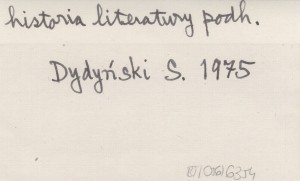 historia literatury podh.
Dydyński S. 1975